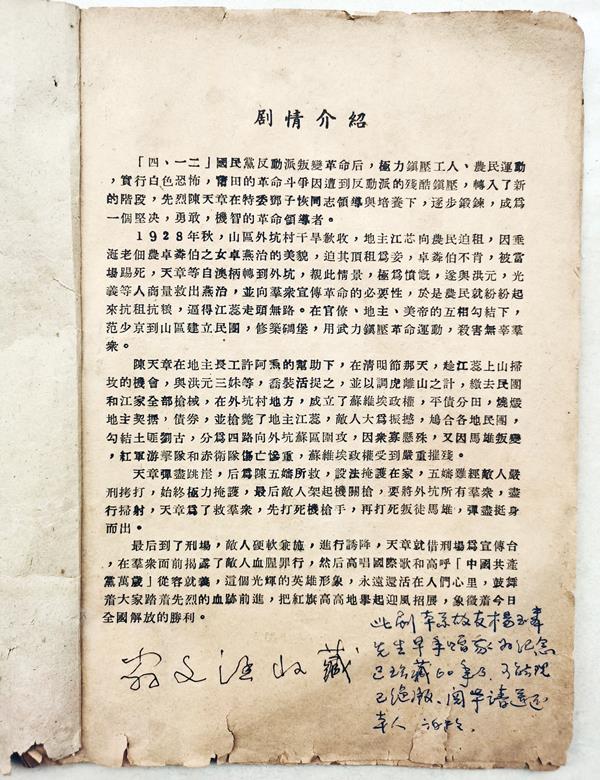 剧情介紹
「四、一二」國民黨反動派叛變革命后，極力鎭壓工人、農民運動
，實行白色恐怖，莆田的革命斗爭因遭到反動派的殘酷鎭壓，轉入了新
的階段，先烈陳天章在特委鄧子恢同志領導與培養下，逐步鍛鍊，成爲
一個堅决，勇敢，機智的革命領導者。
1928年秋，山區外坑村干旱歉收，地主江芯向農民迫租，因垂
海老佃農卓粦伯之女卓燕治的美貌，迫其頂租爲妾，卓粦伯不肯，被當
場踢死，天章等自澳柄轉到外坑，覩此情景，極爲憤慨，遂與洪元，光
義等人商量救出燕治，並向羣衆宣傳革命的必要性，於是農民就紛紛起
來抗租抗粮，逼得江蕊走頭無路。在官僚、地主、美帝的互相勾結下，
范少京到山區建立民團，修築碉堡，用武力鎭壓革命運動，殺害無辜羣
衆。
陳天章在地主長工許阿 的幫助下，在清明節那天，趁江蕊上山掃
坟的機會，與洪元三妹等，喬裝活捉之，並以調虎離山之計，繳去民團
和江家全部搶械，在外坑村地方，成立了蘇維埃政權，平債分田，燒燬
地主契據，債券，並槍斃了地主江蕊，敵人大爲振撼，鳩合各地民團，
勾結土匪劉古，分爲四路向外坑蘇區圍攻，因衆寡懸殊，又因馬雄叛變
，紅軍游擊隊和赤衛隊傷亡慘重，蘇維埃政權受到嚴重摧殘。
天章彈盡跳崖，后爲陳五嬸所救，設法掩護在家，五嬸雖經敵人嚴
刑拷打，始終極力掩護，最后敵人架起機關槍，要將外坑所有羣衆，盡
行掃射，天章爲了救羣衆，先打死機槍手，再打死叛徒馬雄，彈盡挺身
而出。
最后到了刑場，敵人硬軟兼施，進行誘降，天章就借刑場爲宣傳台
，在羣衆面前揭露了敵人血腥罪行，然后高唱國際歌和高呼「中國共產
黨萬歲」從容就義，這個光輝的英雄形象，永遠還活在人們心里，鼓舞
着大家踏着先烈的血跡前進，把紅旗高高地擧起迎風招展，象徵着今日
全國解放的勝利。
文 收藏
此剧本系故友楊玉
先生早年 家 为纪念
已珍藏50年了，可能现
已绝版、阅毕請送还
本人